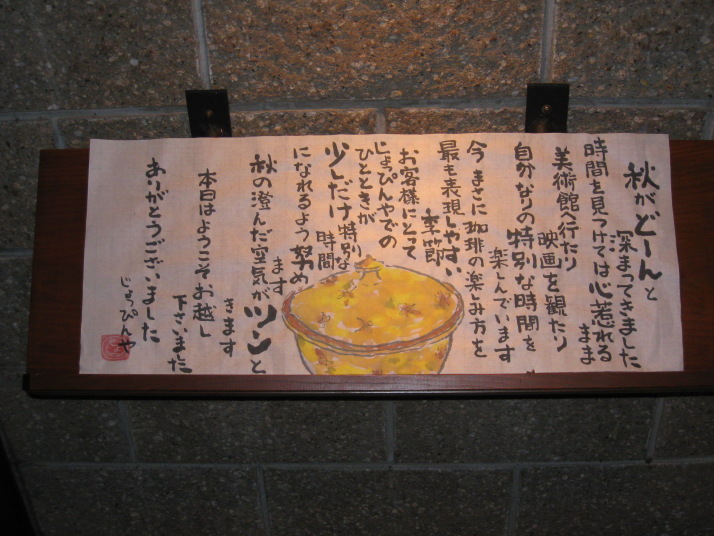 秋がどーんと
深まってきました
時間を見つけては心惹れる
まま
美術館へ行たり
映画を観たり
自分なりの特別な時間を
楽しんでいます
今まさに珈琲の楽しみ方を
最も表現しやすい
季節
お客様にとって
じょぴんやでの
ひとときが
少しだけ特別な
時間
になれるよう努め
ます
秋の澄んだ空気がツンと
きます
本日はようこそお越し
下さいました
ありがとうございました
じょっぴんや